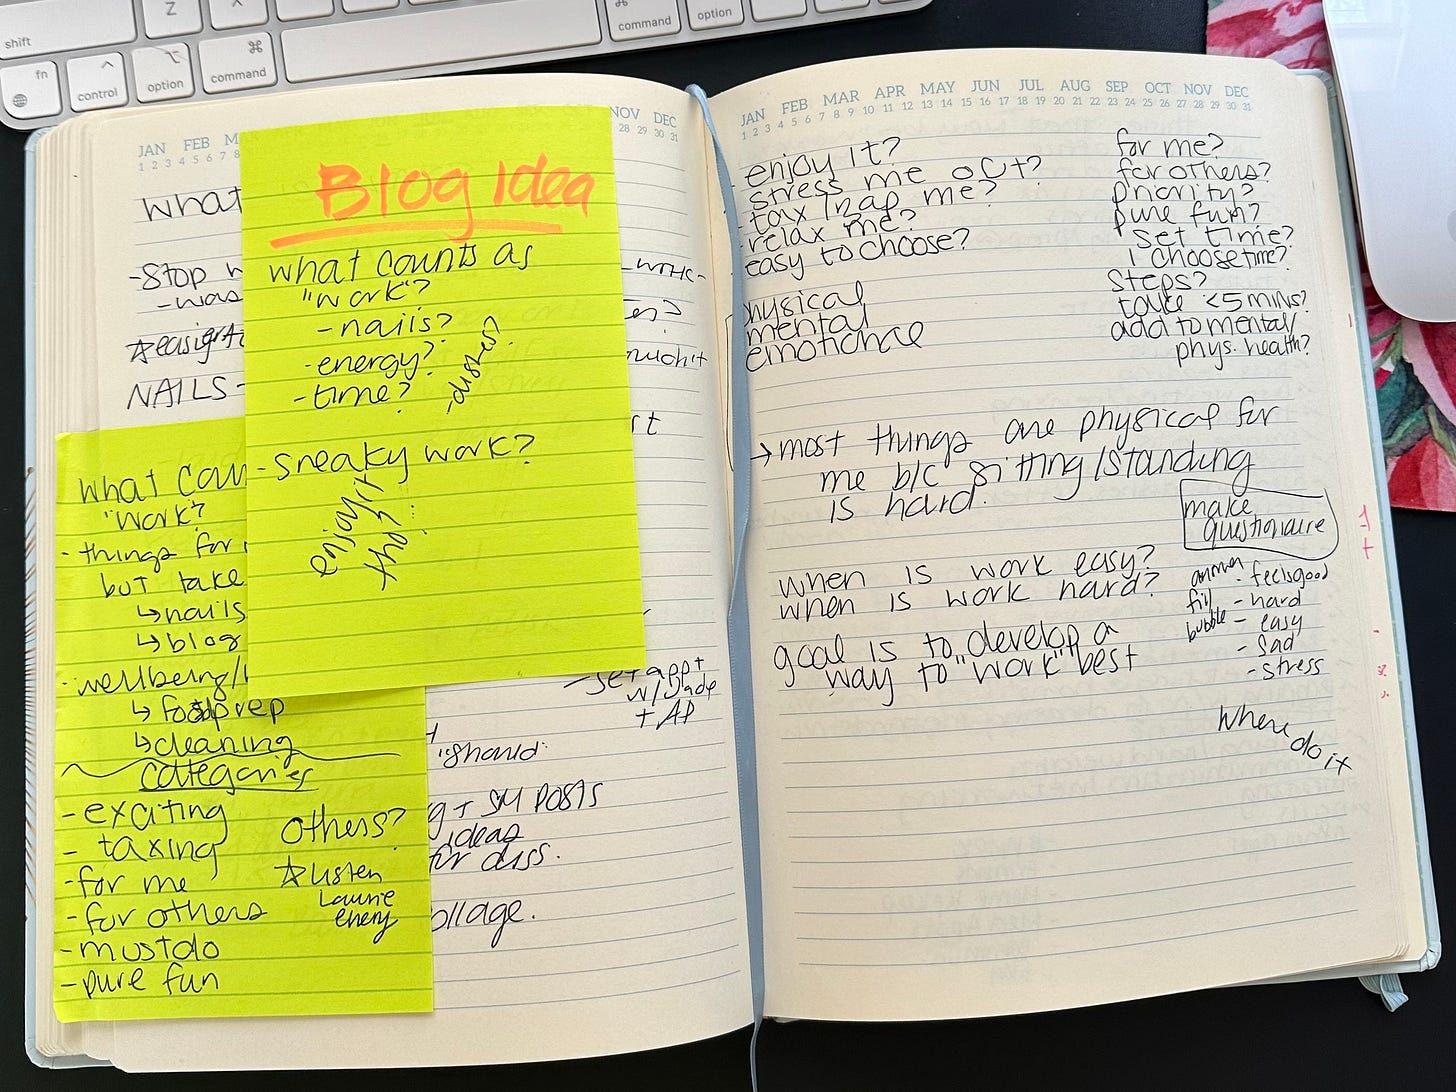 shift
Z
fn
control
option
⌘
command
⌘
command
option
JAN FEB M
1 2 3 4 5 6 7 8
NOV DEC
28 29 30 31
what
-Stop w
-was
NAILS-
Blog Idea
what counts as
"work"?
-nails?
-energy?
-time?
-distress?
-sneaky work?
what coun
"work?
- things for
but take
↳nails
↳blog
-wellbeing/
↳ food prep
↳cleaning
categories
-exciting
- taxing
-for me
-for others
-mustdo
-pure fun
others?
☆listen
Laurie
-set appt
w/Jade
+ AP
"should"
g + SM POSTS
ideas
for diss.
ollage.
JAN FEB MAR APR MAY JUN JUL AUG SEP OCT NOV DEC
1 2 3 4 5 6 7 8 9 10 11 12 13 14 15 16 17 18 19 20 21 22 23 24 25 26 27 28 29 30 31
enjoy it?
-stress me out?
-tax/zap me?
-relax me?
easy to choose?
physical
mental
emotional
for me?
for others?
priority?
pure fun?
set time?
I choose time?
steps?
take <5 mins?
add to mental/
phys. health?
→most things are physical for
me b/c sitting/standing
is hard.
make
questionaire
when is work easy?
when is work hard?
goal is to develop a
way to "work" best
fill
bubble
- feelsgood
- hard
- easy
- sad
- stress
where do it